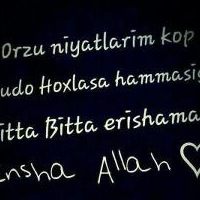 Orzu niyatlarim kop
udo Hoxlasa hammasig
itta Bitta erishama
nsha Allah ♡